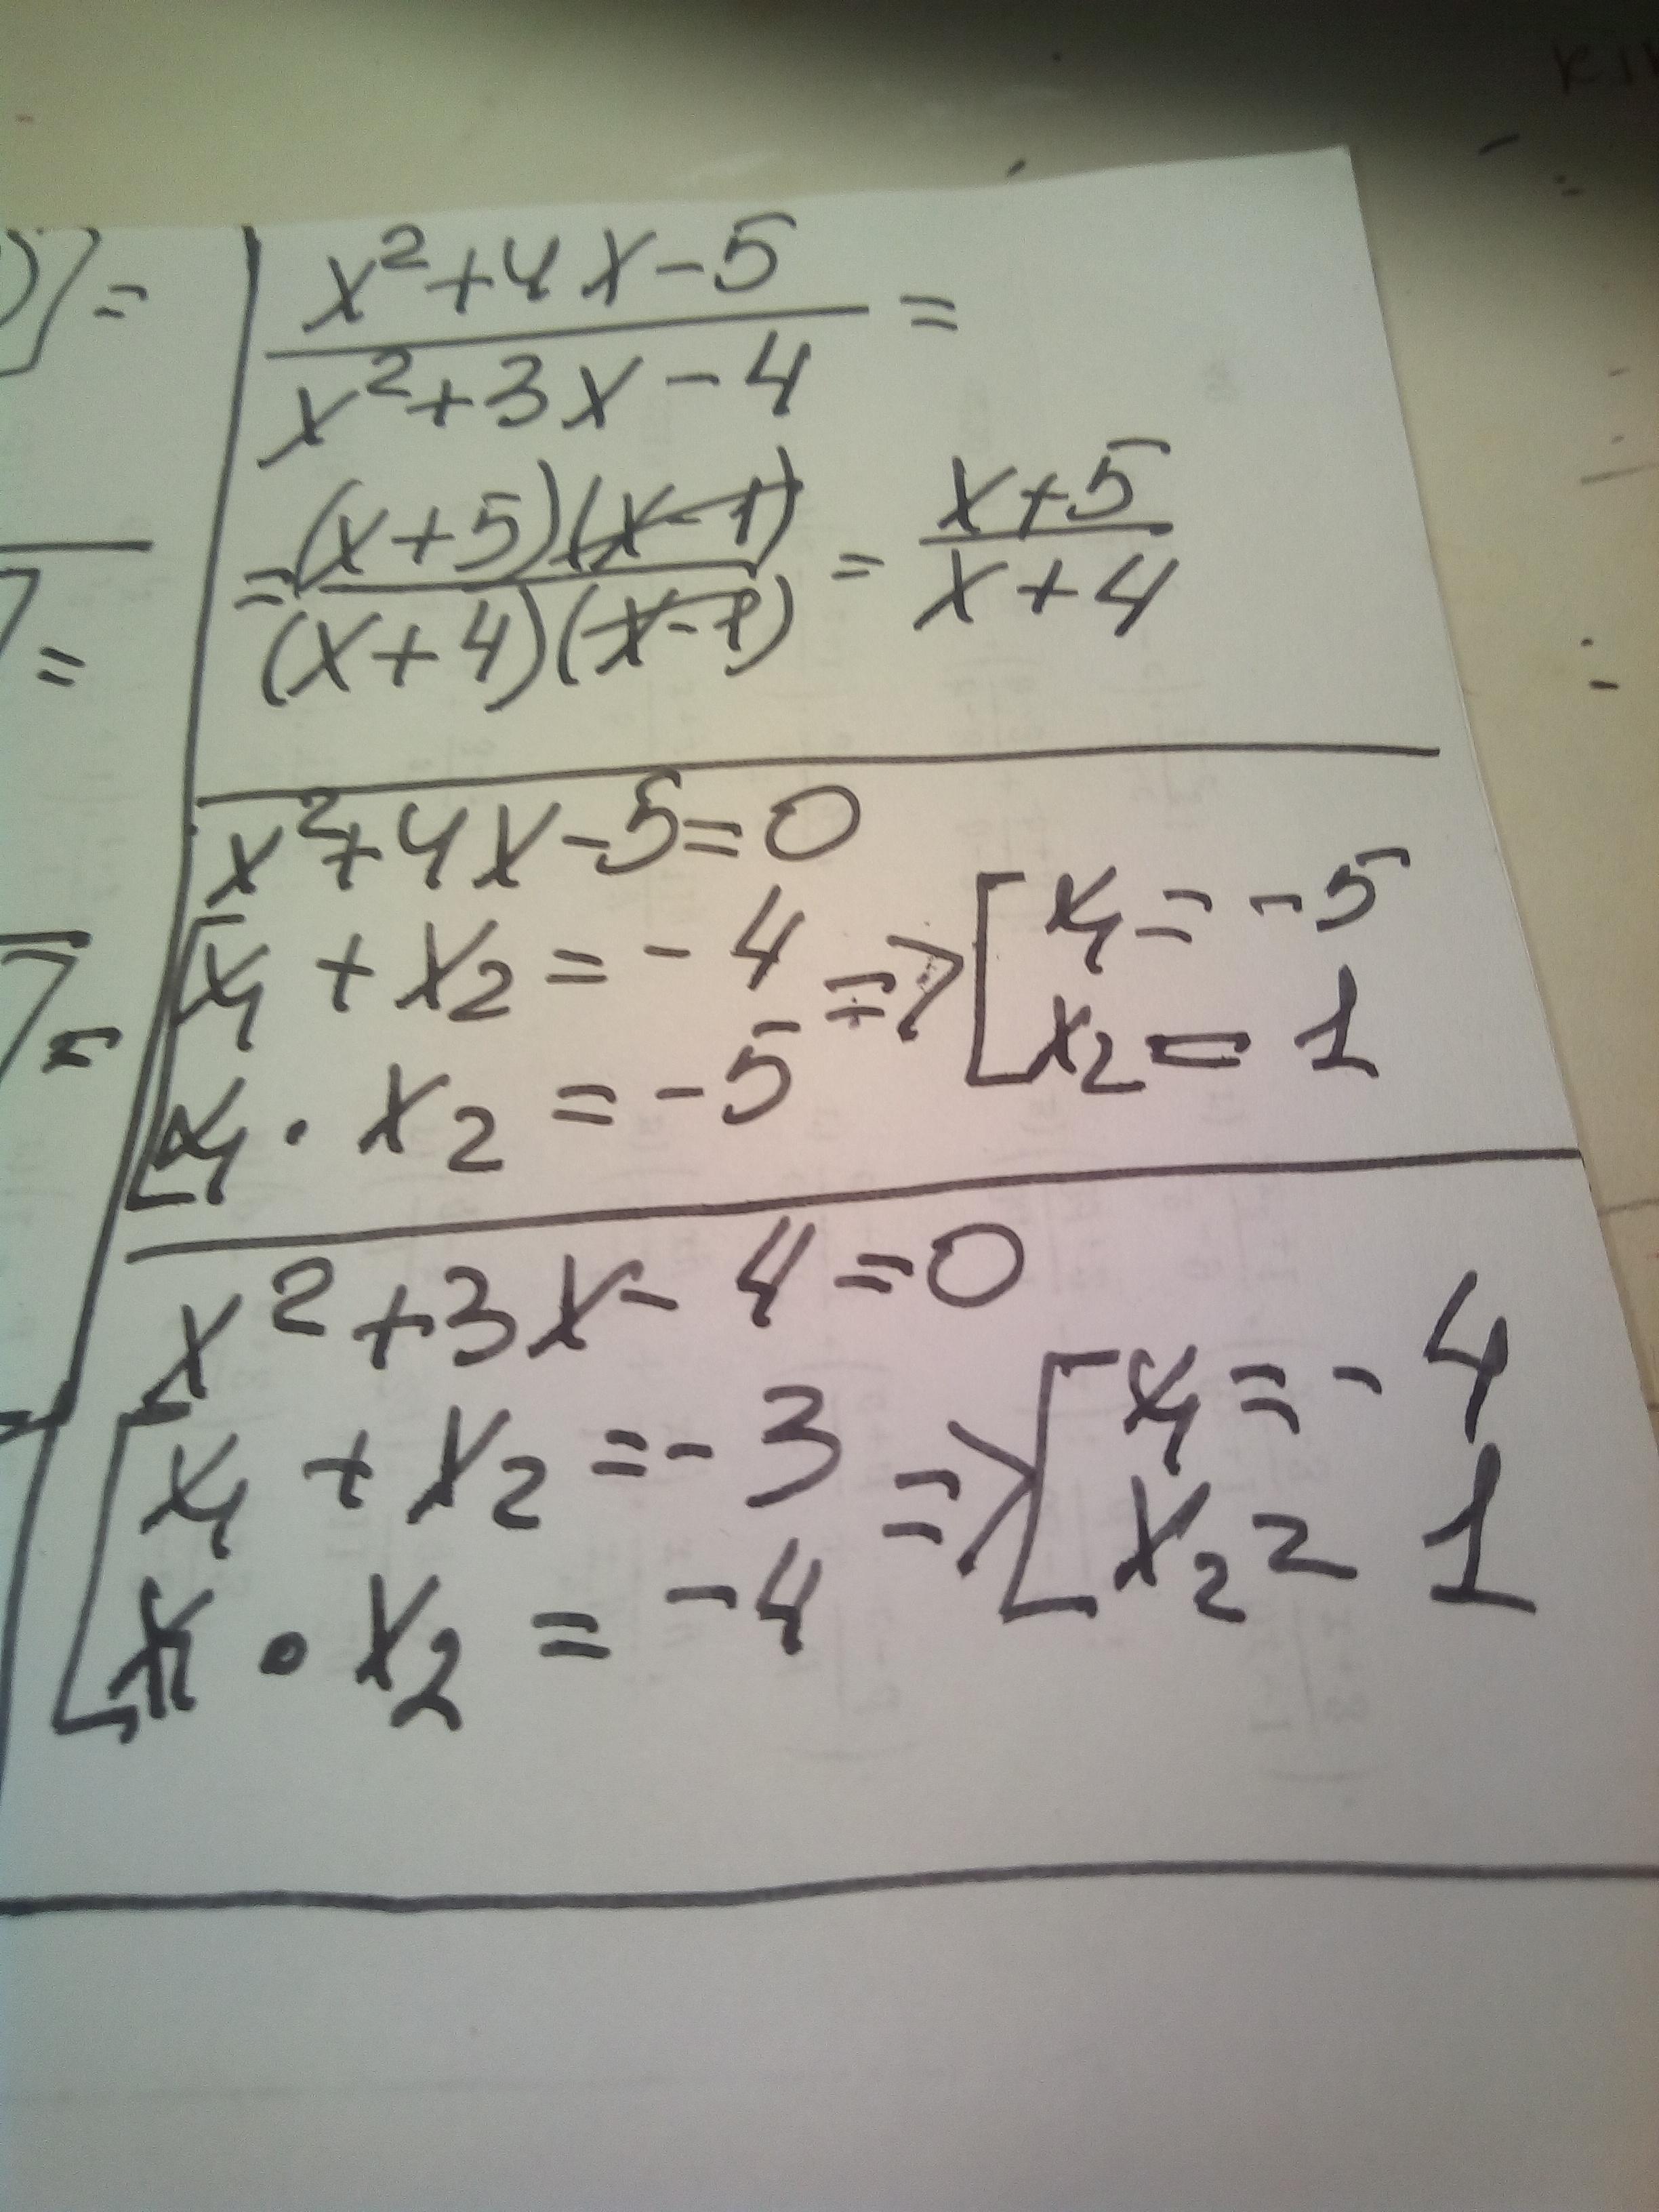 x²+4x-5
/
x²+3x-4
=
= (x+5)(x-1) / (x+4)(x-1) = x+5 / x+4
x²+4x-5=0
[x₁+x₂=-4
x₁·x₂=-5
=> [x₁=-5
x₂=1
x²+3x-4=0
[x₁+x₂=-3
x₁·x₂=-4
=> [x₁=-4
x₂=1